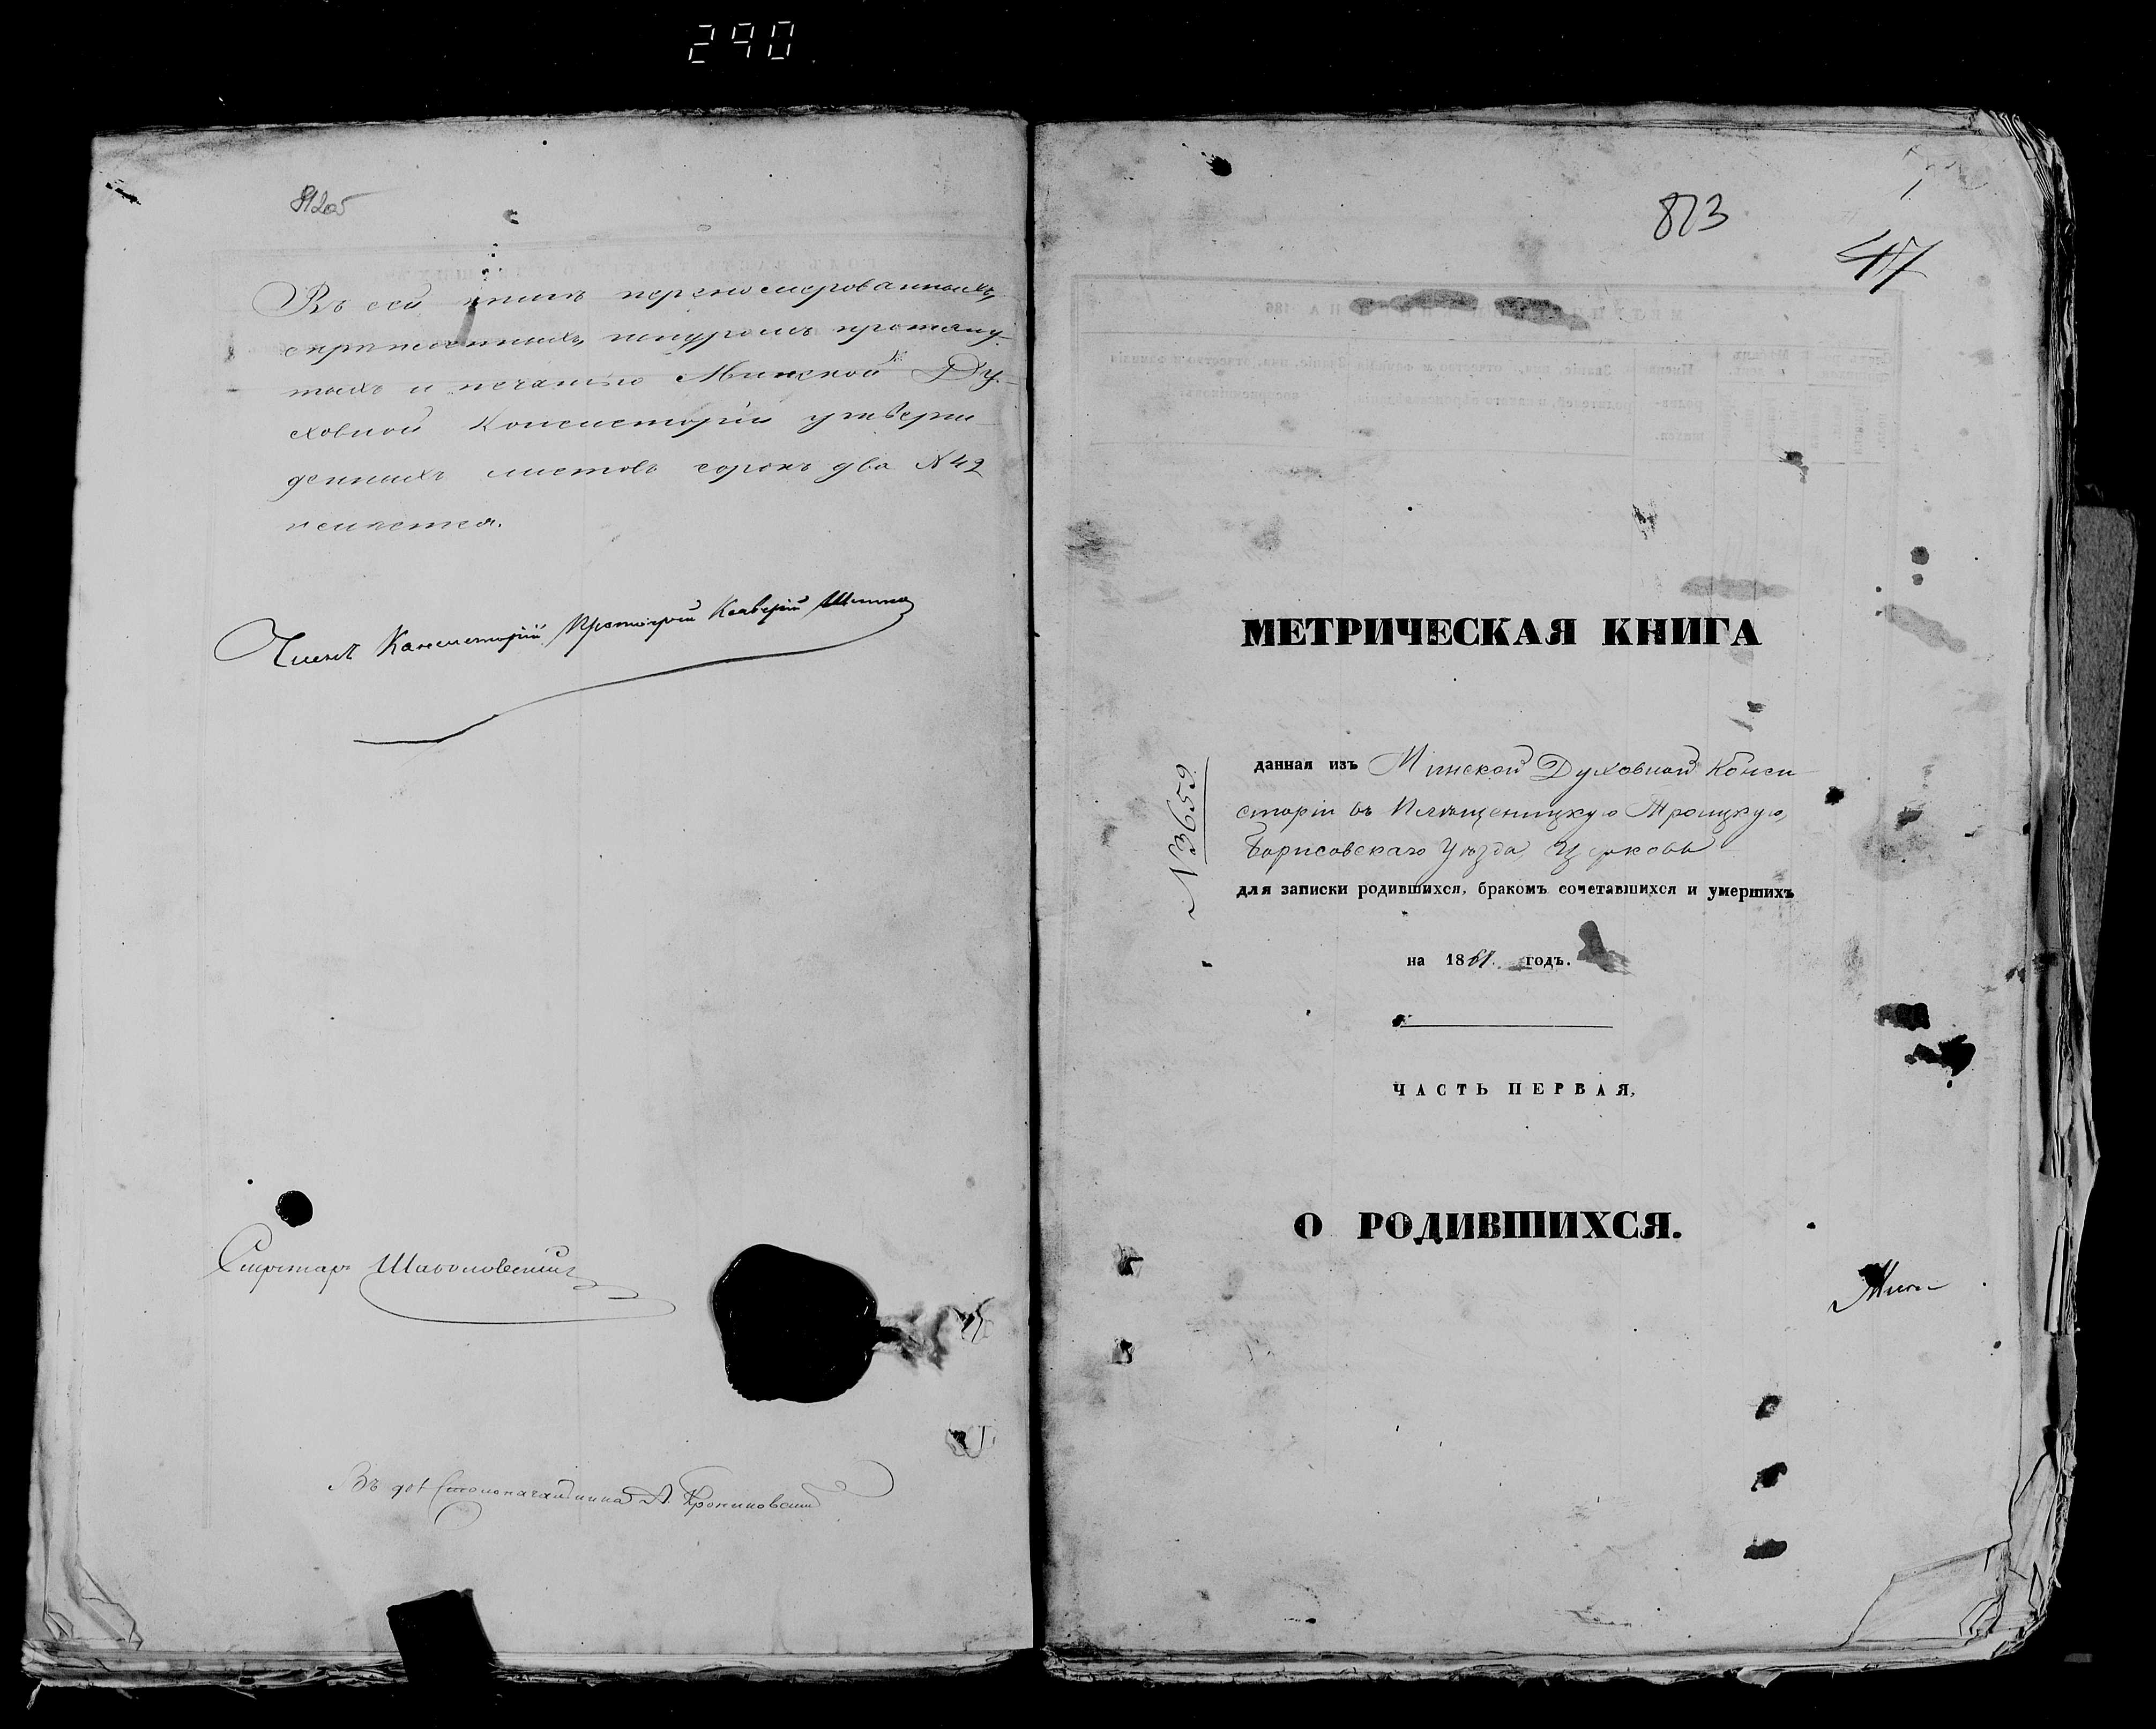 290
Въ сей книгѣ перенумерованныхъ,
скрѣпленныхъ, шнуромъ протяну-
тыхъ и печатью Минской Ду-
ховной Консисторіи утверж-
денныхъ листовъ сорокъ два №42
Членъ Консисторіи Протоіерей
Секретарь
Столоначальника А.
823
47
МЕТРИЧЕСКАЯ КНИГА
№3659
данная изъ Минской Духовной Конси
сторіи въ Плещеницкую Троицкую,
Борисовскаго Уѣзда, Церковь
для записки родившихся, бракомъ сочетавшихся и умершихъ
на 1861. годъ.
ЧАСТЬ ПЕРВАЯ,
О РОДИВШИХСЯ.